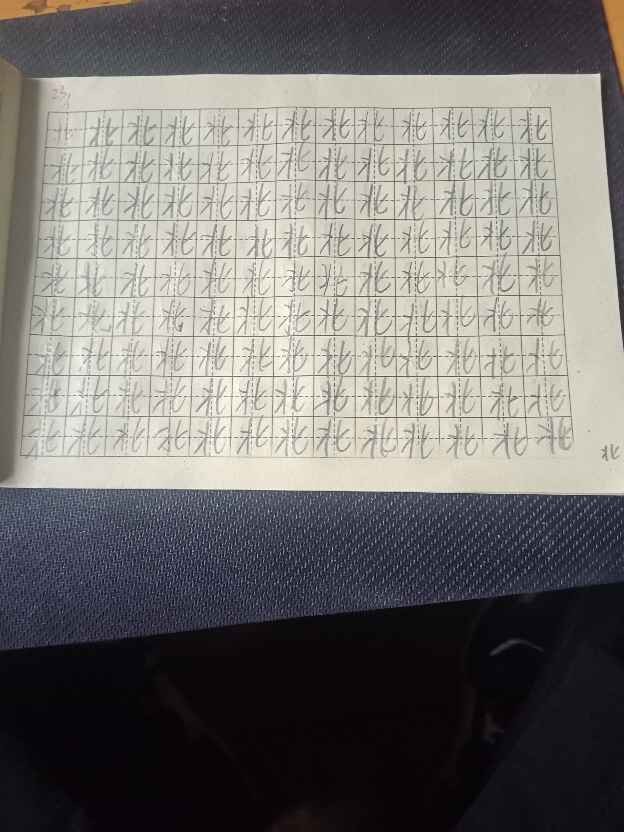 23
北北北北北北北北北北北北北
北北北北北北北北北北北北北
北北北北北北北北北北北北北
北北北北北北北北北北北北北
北北北北北北北北北北北北北
北北北北北北北北北北北北北
北北北北北北北北北北北北北
北北北北北北北北北北北北北
北北北北北北北北北北北北北
北